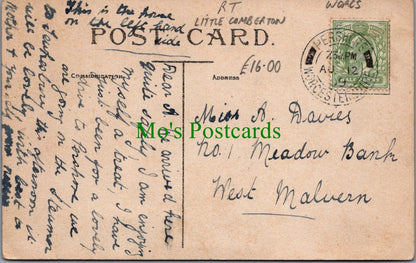 This is the house
on the left hand
side
RT
LITTLE COMBERTON
WORCS
POST CARD.
£16-00
COMMUNICATION.
ADDRESS.
PERSHORE
AU 12
WORCESTER
Dear A. We arrived here
quite safely I am enjoying
myself a treat, I have
just been for a lovely
drive to Pershore we
are going on the Steamer
to Tewkesbury this afternoon it
will be lovely, with love to
Mother & you
Miss A Davies
No. 1. Meadow Bank
West Malvern
Mo's Postcards